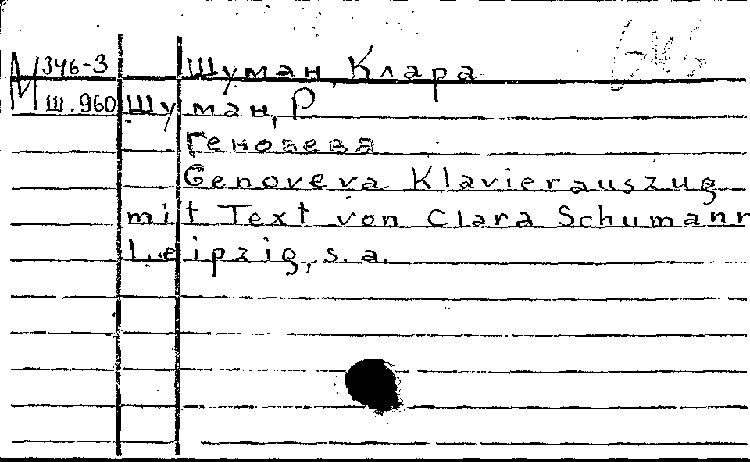 М 346-3 Шуман, Клара
Ш.960 Шуман, Р
Геновева
Genoveva Klavierauszug
mit Text von Clara Schumann
Leipzig, s.a.